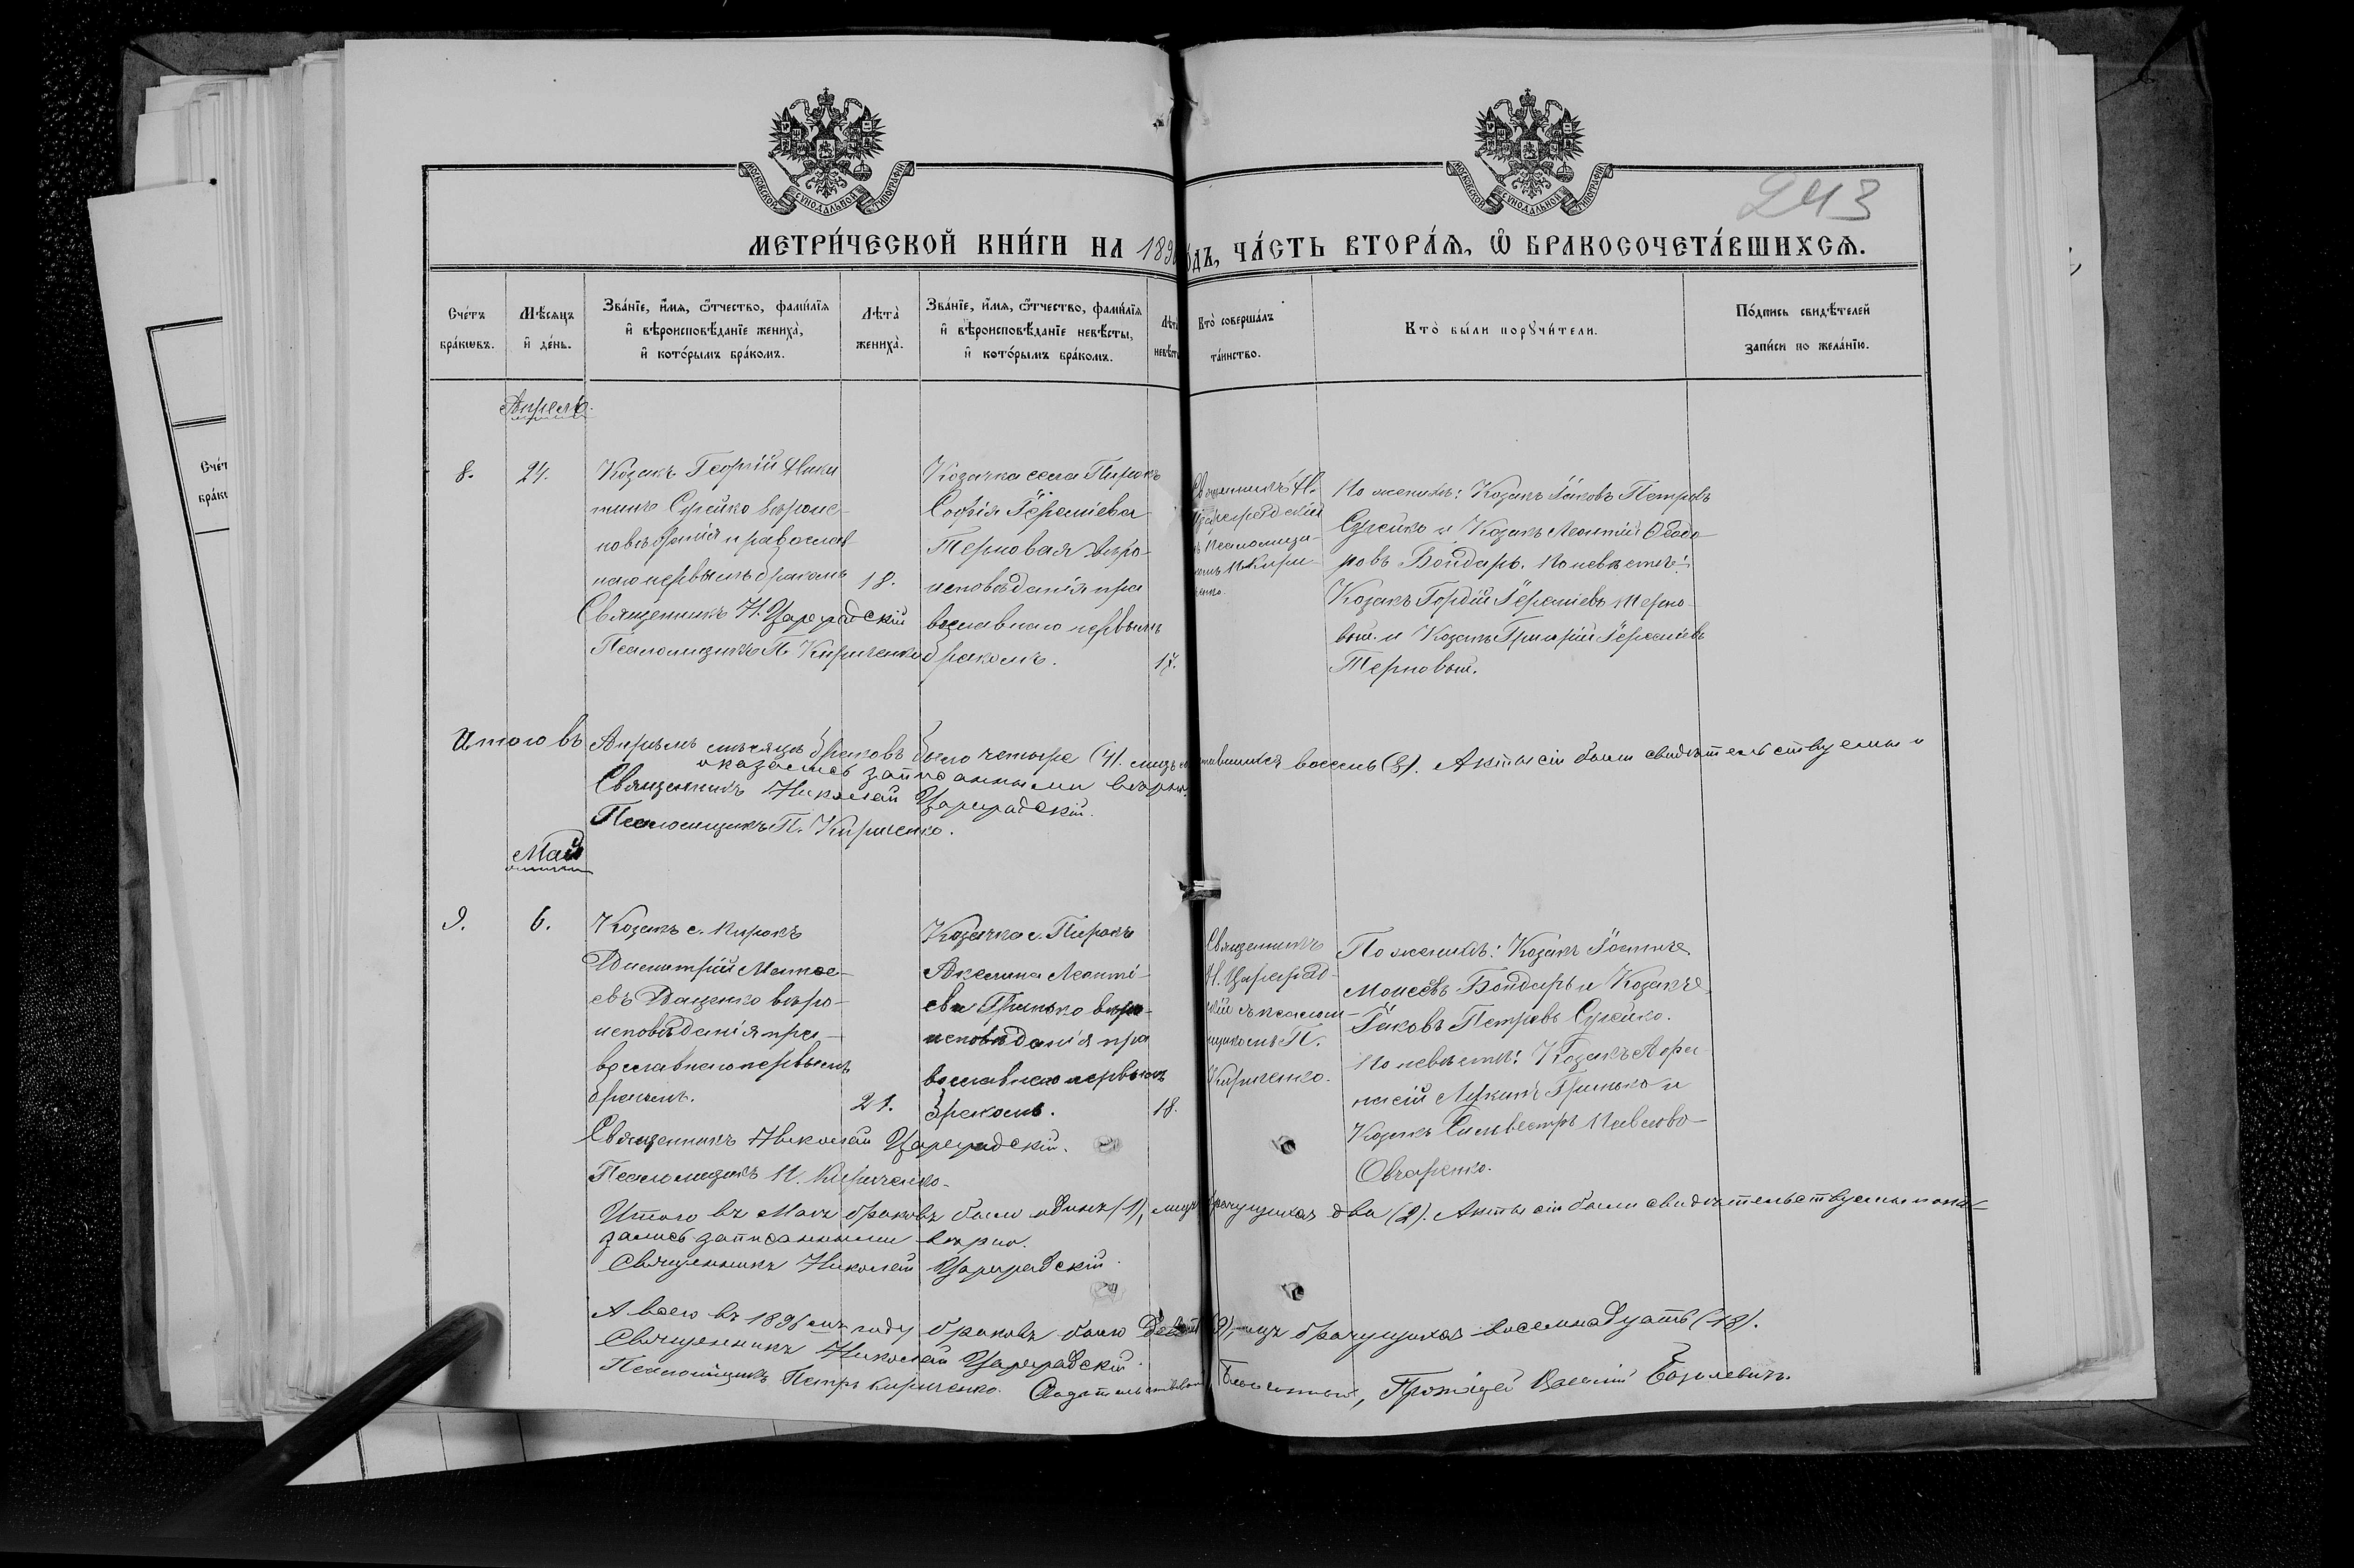 МОСКОВСКОЙ СѴНОДАЛЬНОЙ ТИПОГРАФІИ
МОСКОВСКОЙ СѴНОДАЛЬНОЙ ТИПОГРАФІИ
243
МЕТРИ́ЧЕСКОЙ КНИ́ГИ НА 189
ЧА́СТЬ ВТОРА́Ѧ, Ѿ БРАКОСОЧЕТА́ВШИХСѦ.
Сче́тъ бра́кѡвъ.
Мѣ́сяцъ и҆ де́нь.
Зва́нїе, и҆́мѧ, ѻ҆́тчество, фами́лїѧ
и҆ вѣроисповѣ́данїе жениха̀,
и҆ кото́рымъ бра́комъ.
Лѣта̀ жениха̀.
Зва́нїе, и҆́мѧ, ѻ҆́тчество, фами́лїѧ
и҆ вѣроисповѣ́данїе невѣ́сты,
и҆ кото́рымъ бра́комъ.
Лѣта̀ невѣст
Кто̀ соверша́лъ та́инство.
Кто̀ бы́ли порꙋчи́тели.
По́дпись свидѣ́телей
за́писи по жела́нїю.
Апрель.
8.
24.
Козакъ Георгій Ники
тинъ Сулейко вѣроис-
повѣданія православ
наго первымъ бракомъ
18.
Священникъ Н. Цареградскій
Псаломщикъ П. Кириченко
Козачка села Пирокъ
Софія Іереміева
Терновая вѣро-
исповѣданія пра
вославнаго первымъ
бракомъ.
17.
Священникъ Н.
Цареградскій
съ псаломщи-
комъ П. Кири-
ченко.
По женихѣ: Козакъ Іаковъ Петровъ
Сулейко и Козакъ Леонтій Ѳеодо-
ровъ Бондарь. По невѣстѣ:
Козакъ Гордій Іереміевъ Терно-
вый и Козакъ Григорій Іереміевъ
Терновый.
Итого въ Апрѣлѣ мѣсяцѣ браковъ было четыре (4). лицъ восемь (8). Акты сіи были свидѣтельствуемы и
оказались записанными вѣрно.
Священникъ Николай Цареградскій.
Псаломщикъ П. Кириченко.
Май
9.
6.
Козакъ с. Пирокъ
Димитрій Матѳе-
евъ Даценко вѣро-
исповѣданія пра-
вославнаго первымъ
бракомъ.
21.
Козачка с. Пирокъ
Акелина Леонті-
ева Гринько вѣро-
исповѣданія пра
вославнаго первымъ
бракомъ.
18.
Священникъ
Н. Цареград-
скій съ псалом-
щикомъ П.
Кириченко.
По женихѣ: Козакъ
Моисеевъ Бондарь и Козакъ
Іаковъ Петровъ Сулейко.
По невѣстѣ: Козакъ Аѳа-
насій Лукинъ Гринько и
Козакъ Сильвестръ Павловъ
Овчаренко.
Священникъ Николай Цареградскій.
Псаломщикъ П. Кириченко.
Итого въ Маѣ браковъ было одинъ (1), лицъ брачущихся два (2). Акты сіи были свидѣтельствуемы и ока-
зались записанными вѣрно.
Священникъ Николай Цареградскій.
А всего въ 1896 мъ году браковъ было девять (9), лицъ брачущихся восемнадцать (18).
Священникъ Николай Цареградскій.
Псаломщикъ Петръ Кириченко.